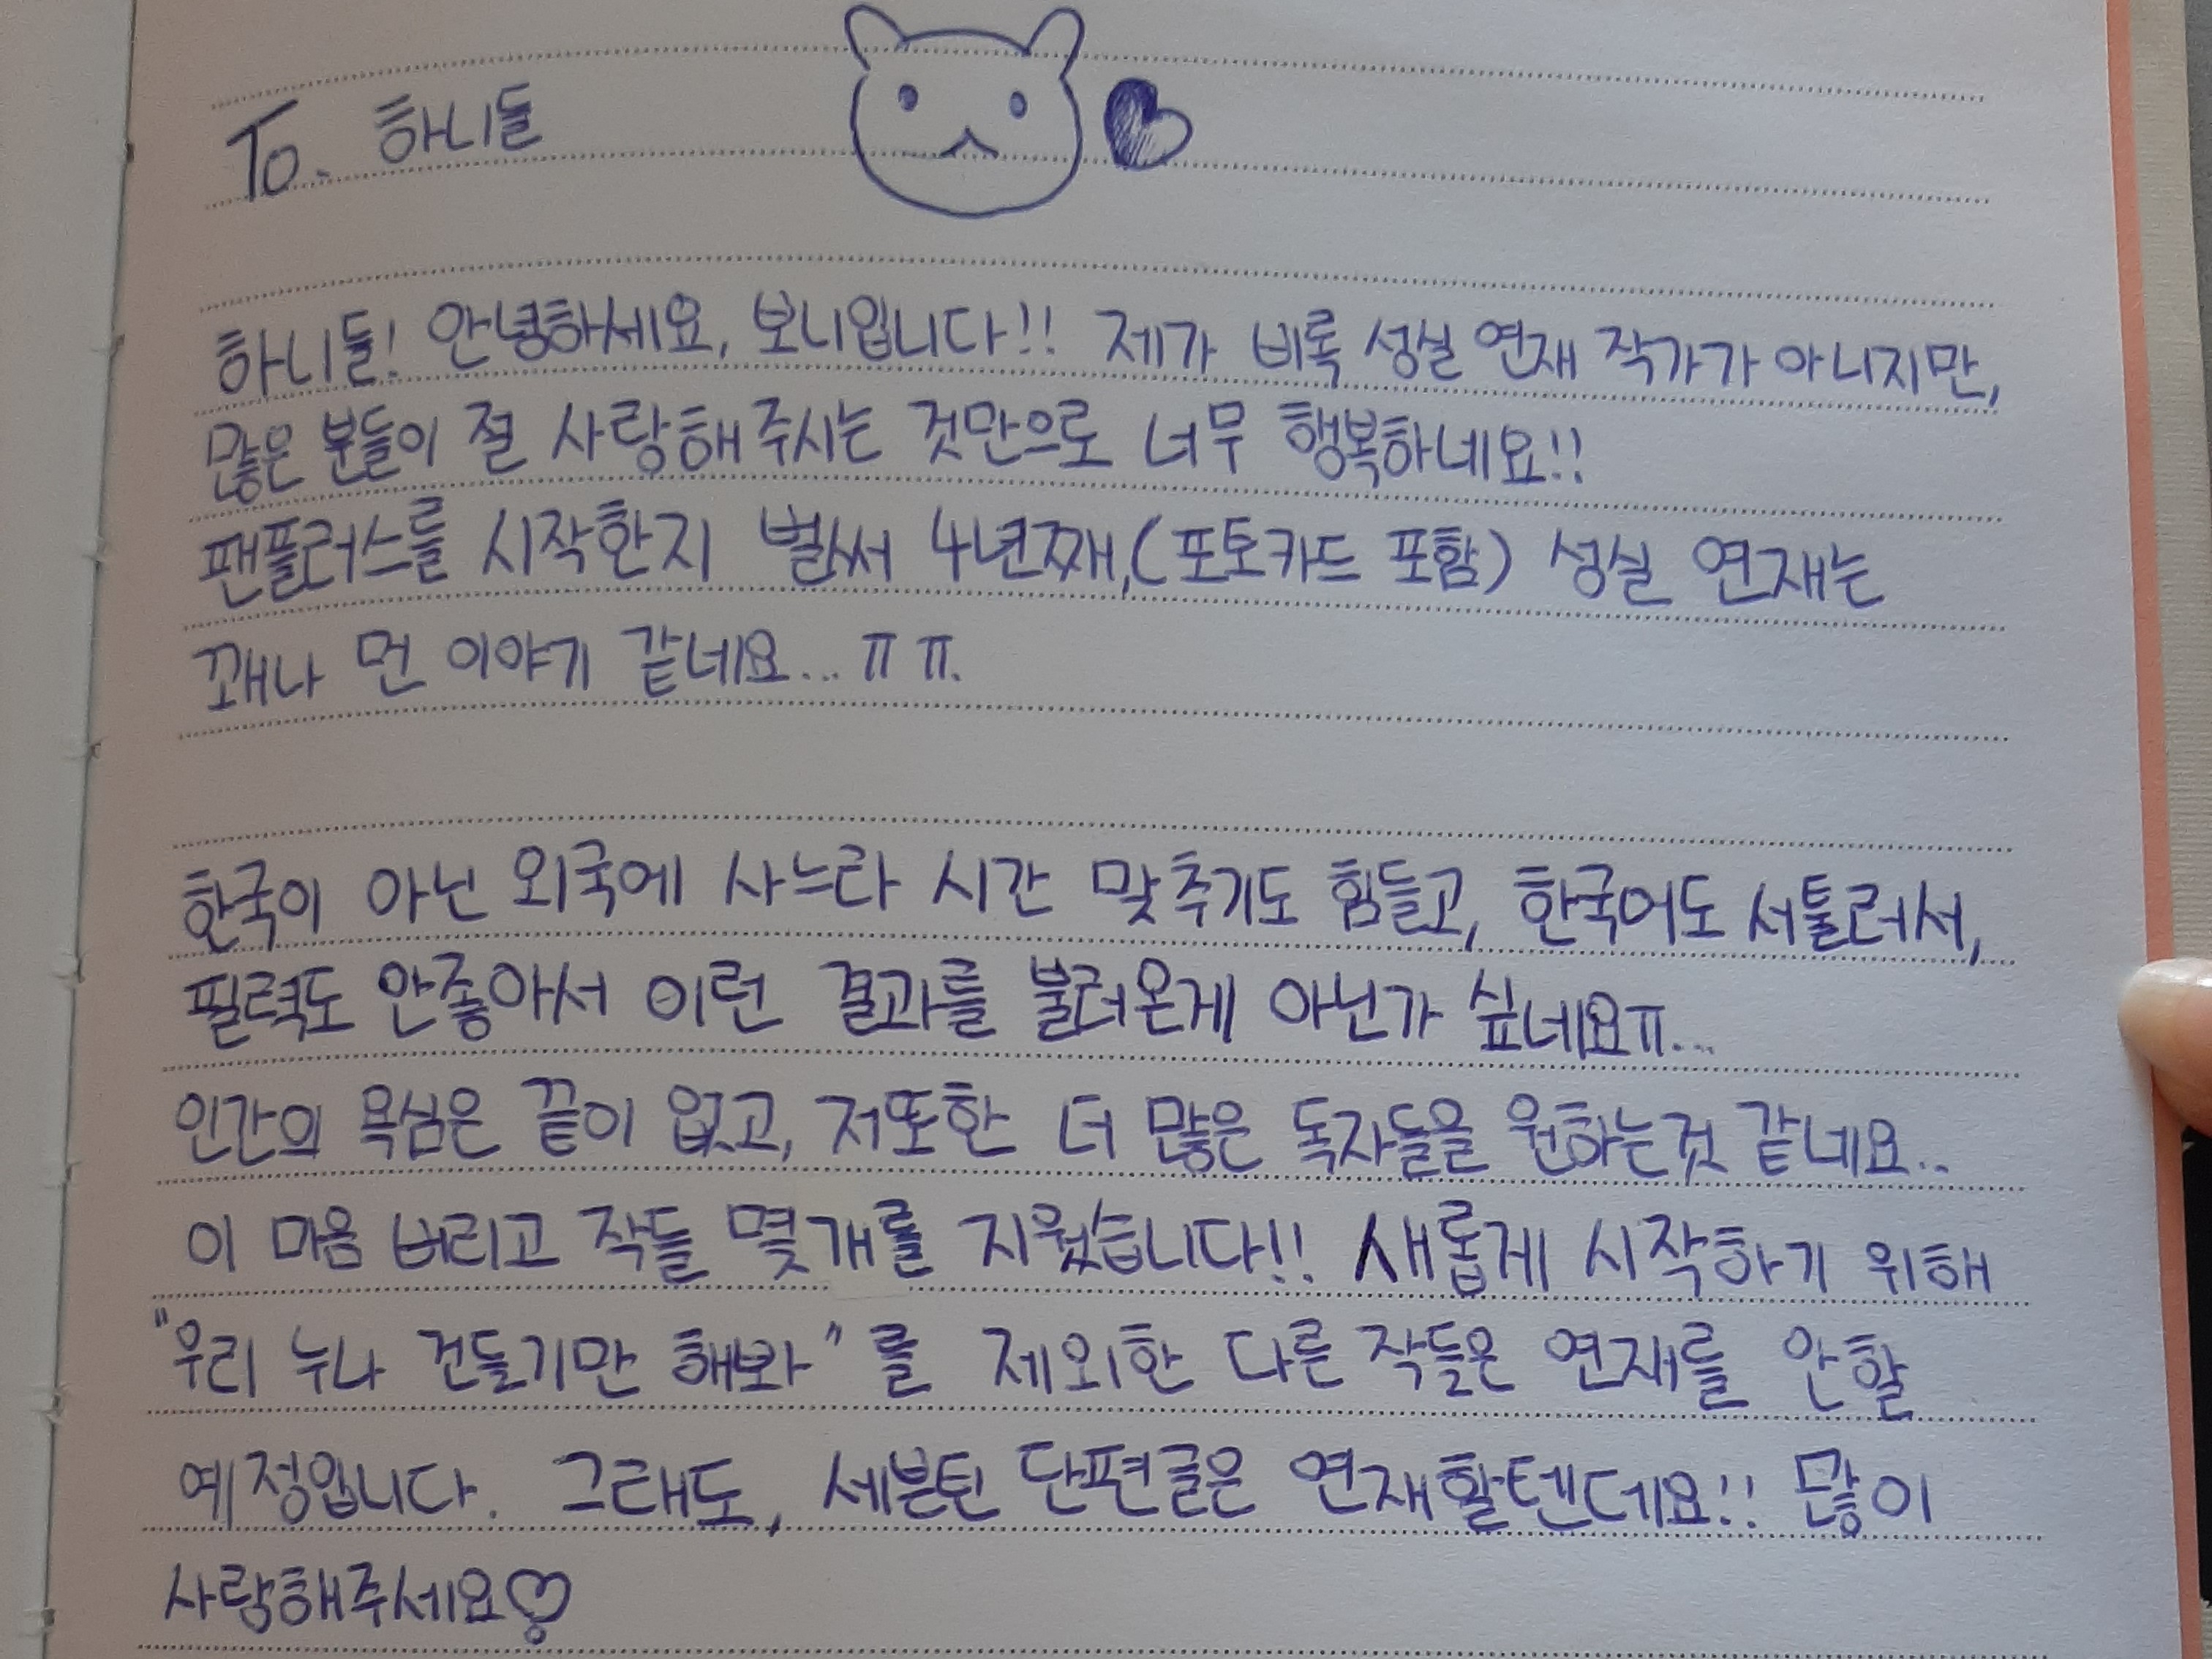 To. 하니들
하니들! 안녕하세요, 보니입니다!! 제가 비록 성실 연재 작가가 아니지만,
많은 분들이 절 사랑해주시는 것만으로 너무 행복하네요!!
팬플러스를 시작한지 벌써 4년째,(포토카드 포함) 성실 연재는
꽤나 먼 이야기 같네요...ㅠㅠ.
한국이 아닌 외국에 사느라 시간 맞추기도 힘들고, 한국어도 서툴러서,
필력도 안좋아서 이런 결과를 불러온게 아닌가 싶네요ㅠ...
인간의 욕심은 끝이 없고, 저또한 더 많은 독자들을 원하는것 같네요..
이 마음 버리고 작들 몇개를 지웠습니다!! 새롭게 시작하기 위해
"우리 누나 건들기만 해봐"를 제외한 다른 작들은 연재를 안할
예정입니다. 그래도, 세븐틴 단편글은 연재할텐데요!! 많이
사랑해주세요♡